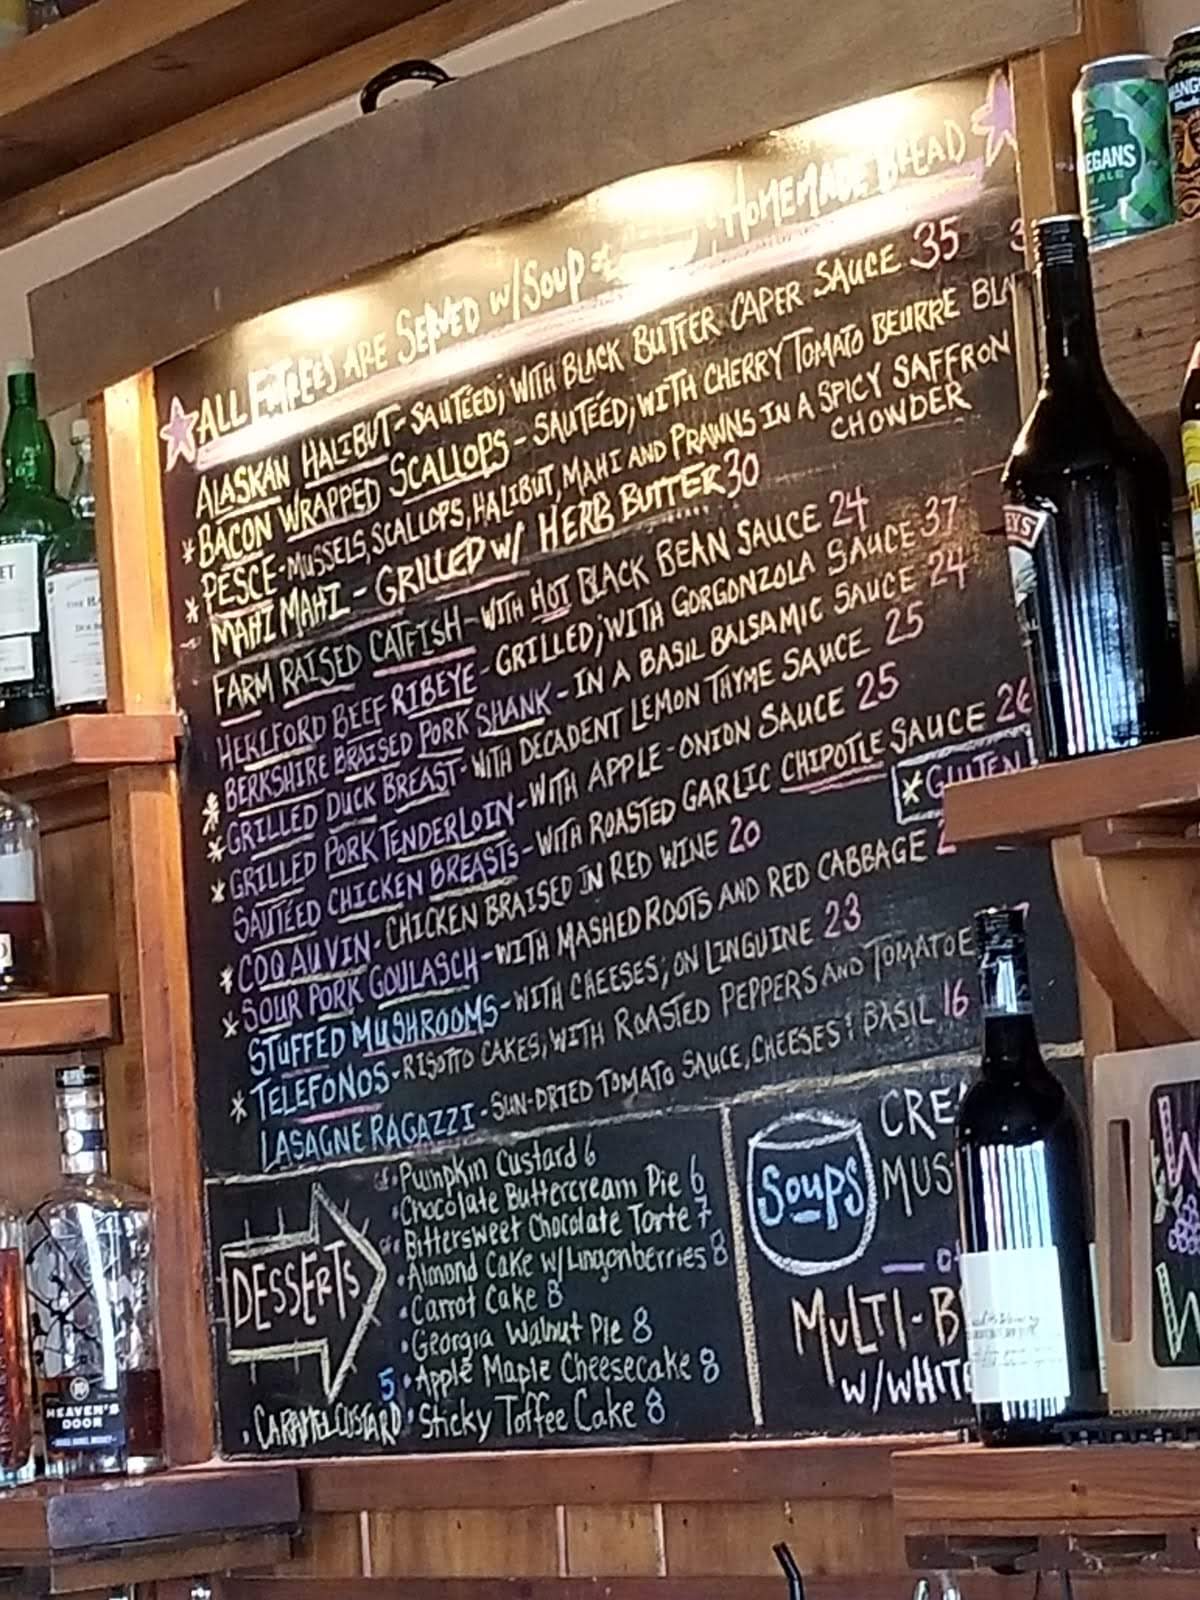 ALL ENTREES ARE SERVED W/SOUP HOMEMADE BREAD
ALASKAN HALIBUT - SAUTÉED; WITH BLACK BUTTER CAPER SAUCE 35
* BACON WRAPPED SCALLOPS - SAUTÉED; WITH CHERRY TOMATO BEURRE BLA
* PESCE - MUSSELS, SCALLOPS, HALIBUT, MAHI AND PRAWNS IN A SPICY SAFFRON
CHOWDER
MAHI MAHI - GRILLED W/ HERB BUTTER 30
FARM RAISED CATFISH - WITH HOT BLACK BEAN SAUCE 24
HEREFORD BEEF RIBEYE - GRILLED; WITH GORGONZOLA SAUCE 37
* BERKSHIRE BRAISED PORK SHANK - IN A BASIL BALSAMIC SAUCE 24
* GRILLED DUCK BREAST - WITH DECADENT LEMON THYME SAUCE 25
* GRILLED PORK TENDERLOIN - WITH APPLE-ONION SAUCE 25
SAUTÉED CHICKEN BREASTS - WITH ROASTED GARLIC CHIPOTLE SAUCE 26
* GLUTEN
* COQ AU VIN - CHICKEN BRAISED IN RED WINE 20
* SOUR PORK GOULASCH - WITH MASHED ROOTS AND RED CABBAGE 2
STUFFED MUSHROOMS - WITH CHEESES; ON LINGUINE 23
* TELEFONOS - RISOTTO CAKES, WITH ROASTED PEPPERS AND TOMATOE
LASAGNE RAGAZZI - SUN-DRIED TOMATO SAUCE, CHEESES & BASIL 16
DESSERTS
Pumpkin Custard 6
• Chocolate Buttercream Pie 6
Bittersweet Chocolate Torte 7
• Almond Cake w/Lingonberries 8
• Carrot Cake 8
• Georgia Walnut Pie 8
• Apple Maple Cheesecake 8
• Sticky Toffee Cake 8
• CARAMEL CUSTARD 5
SOUPS
CRE
MUS
MULTI-B
W/WHITE
EGANS
ALE
MANG
EYS
HEAVEN'S
DOOR